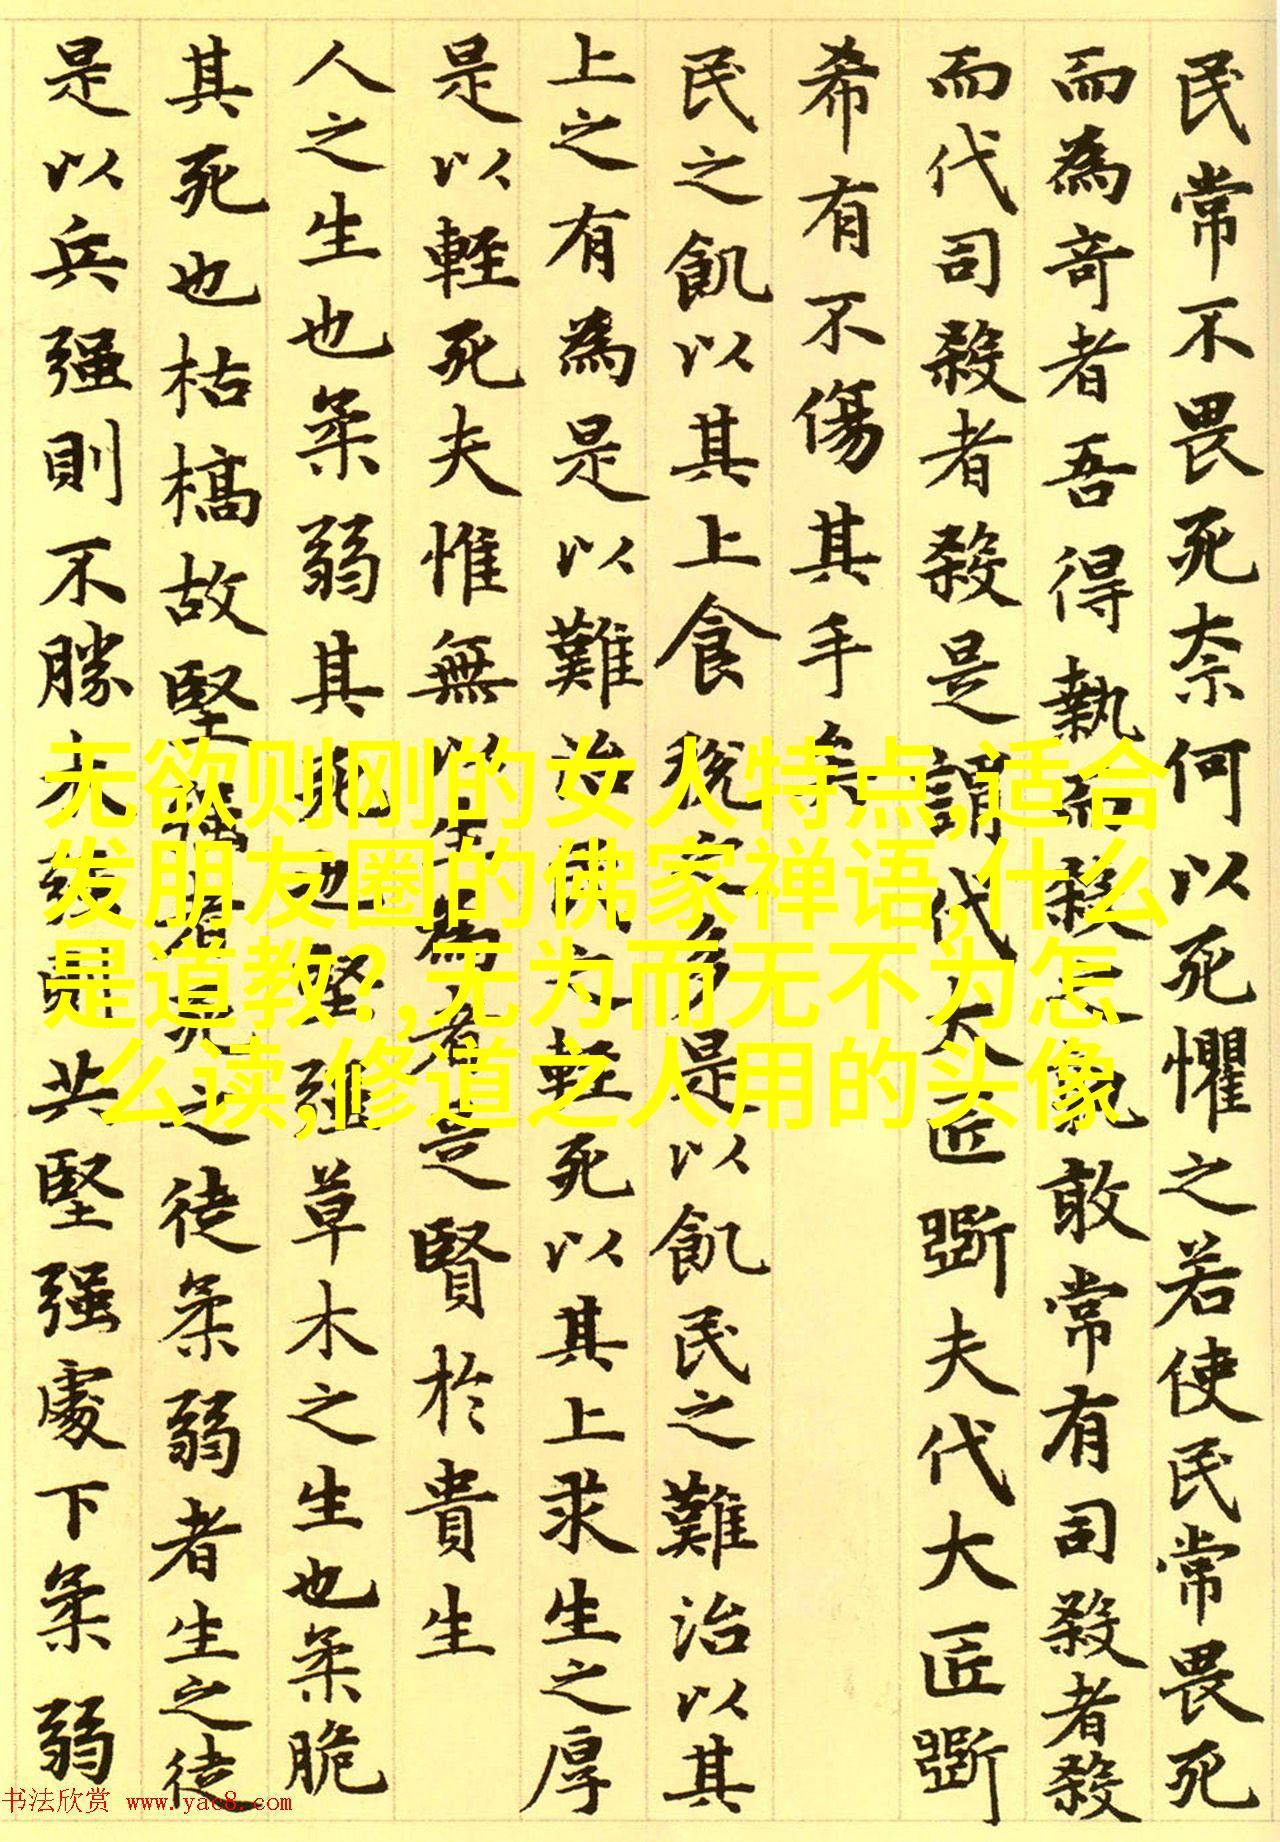 民常不畏死奈何以死懼之若使民常畏死
而為奇者吾得執而殺之孰敢常有司殺者殺
而代司殺者殺是謂代大匠斲夫代大匠斲
希有不傷其手矣
民之飢以其上食稅之多是以飢民之難治以其
上之有為是以難治民之輕死以其上求生之厚
是以輕死夫惟無以生為者是賢於貴生
人之生也柔弱其死也堅強草木之生也柔脆
其死也枯槁故堅強者死之徒柔弱者生之徒
是以兵强則不勝木強則共堅强處下柔弱
无欲则刚的女人特点,适合
发朋友圈的佛家禅语,什么
是道教?,无为而无不为怎
么读,修道之人用的头像
书法欣赏 www.yac8.com